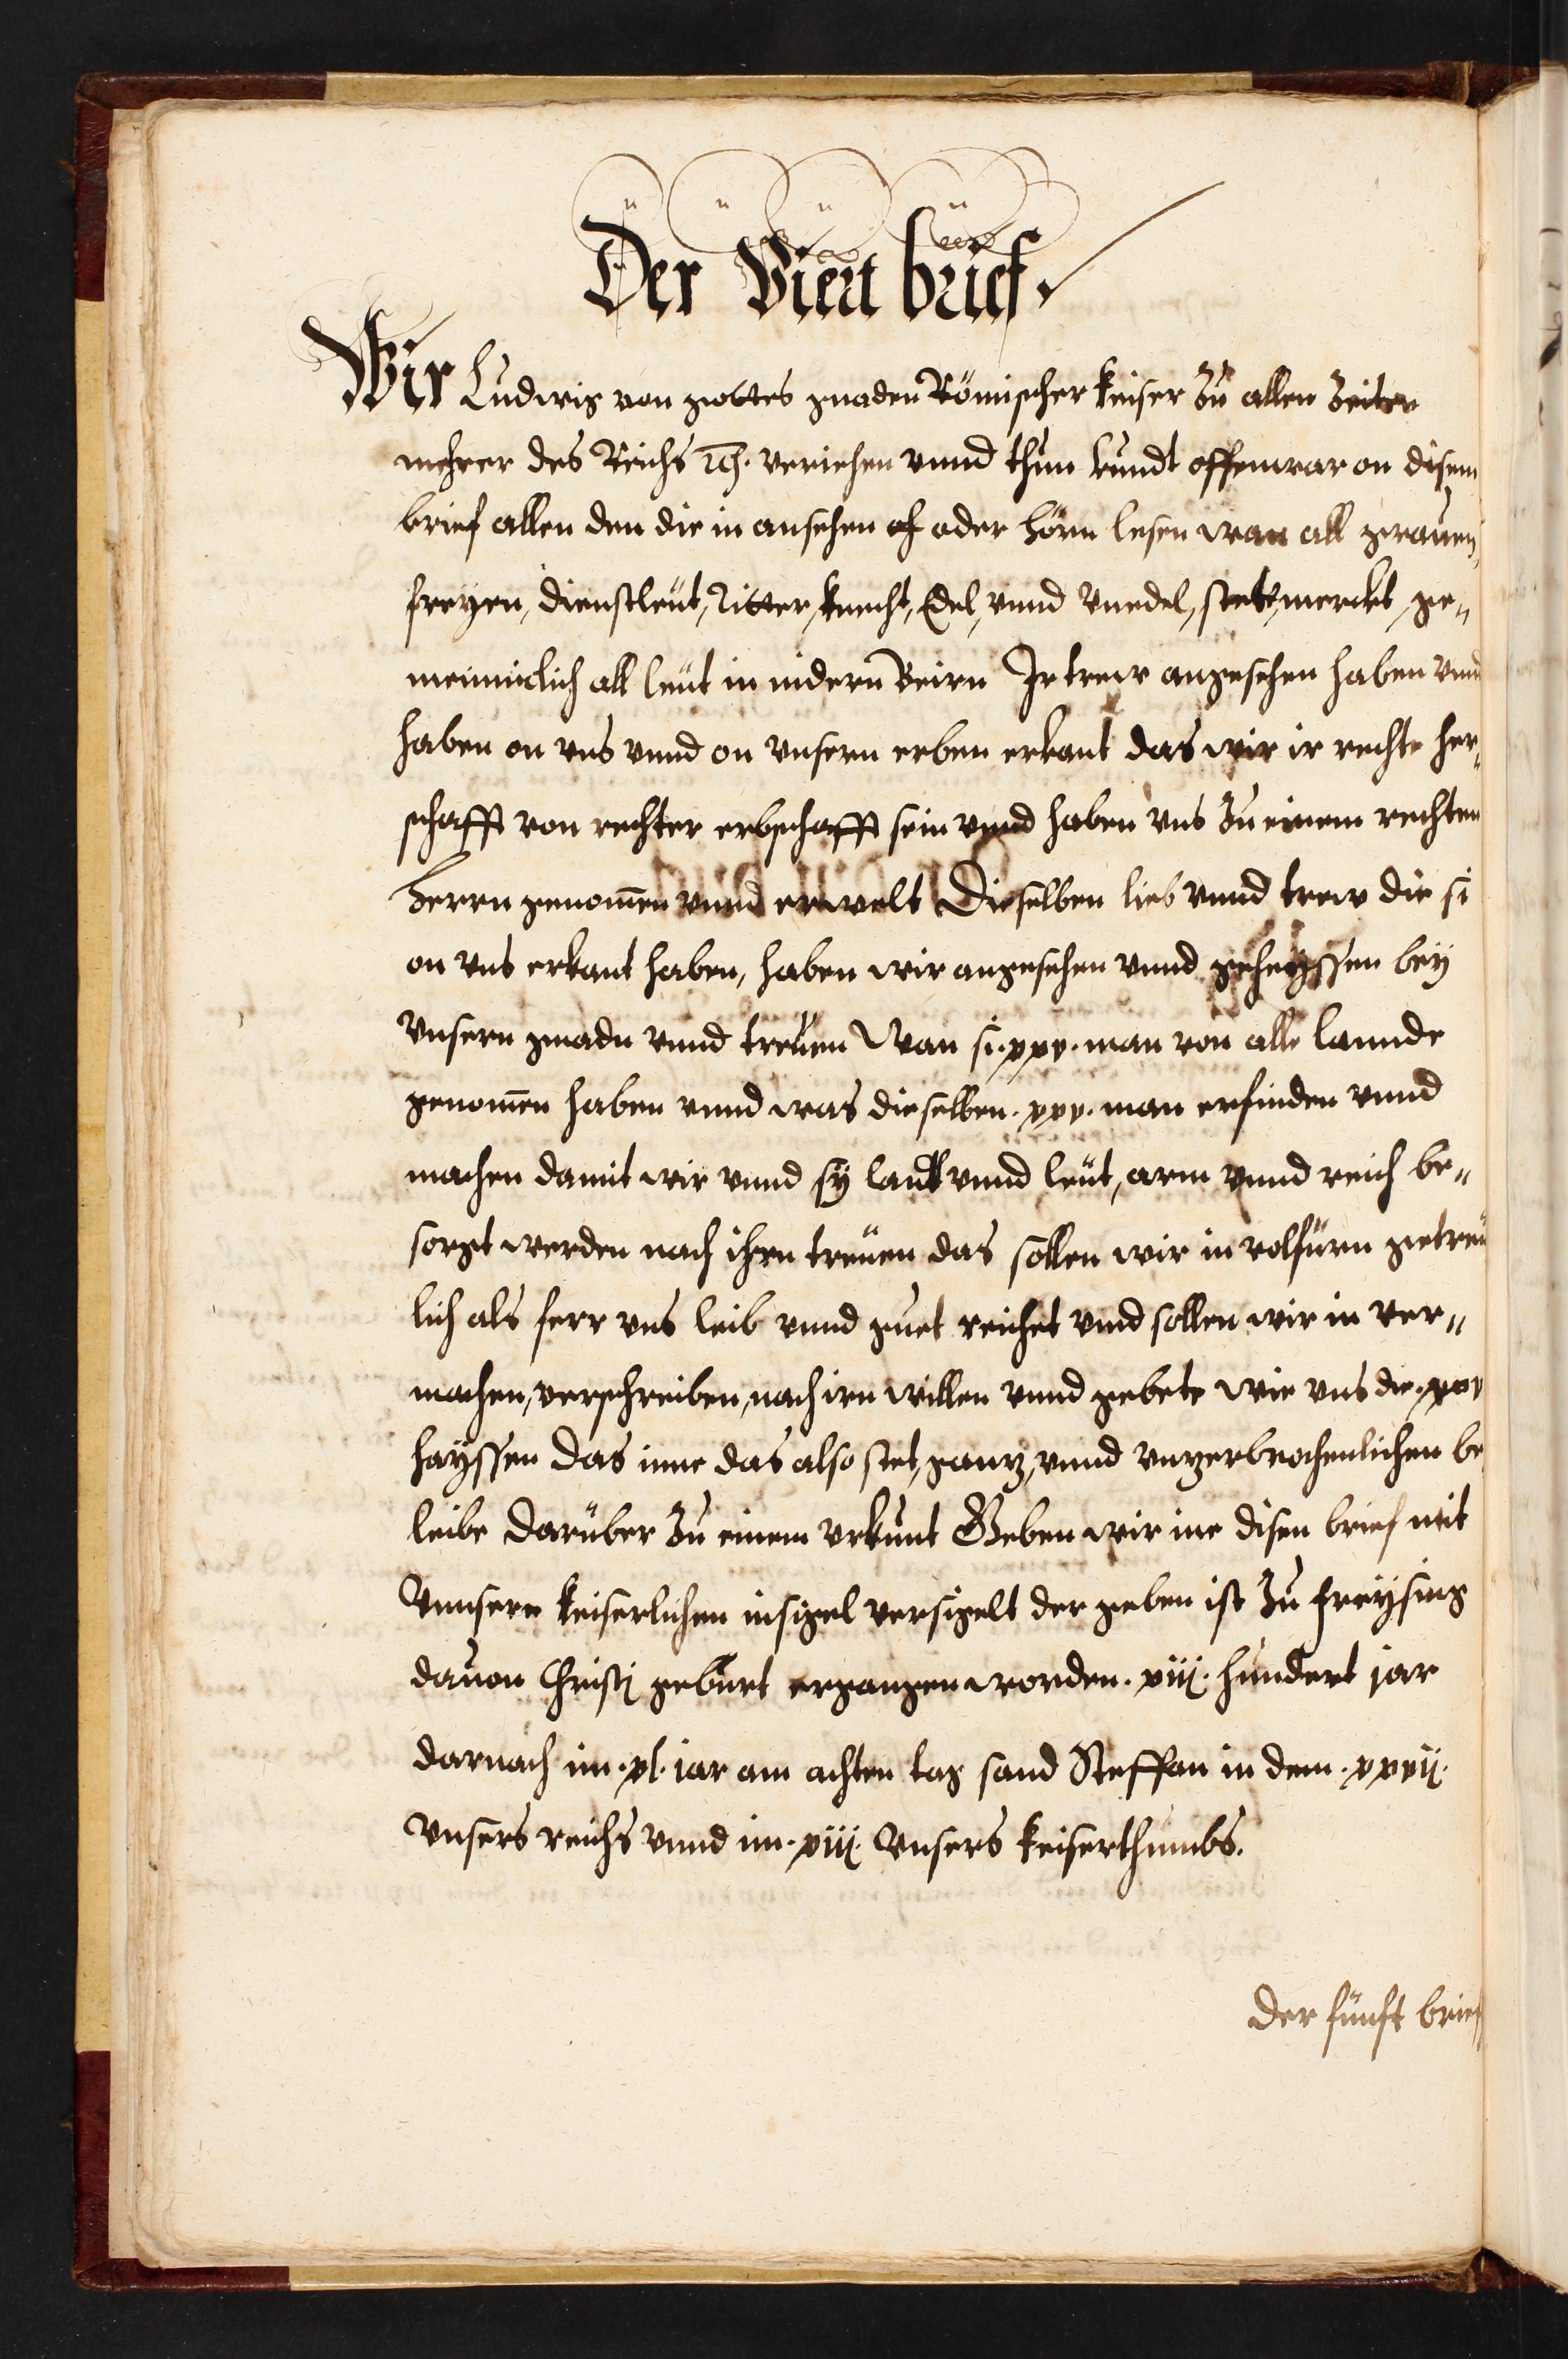 Der Viert brief
Wir Ludwig von gottes gnaden Römischer keiser zu allen zeiten
mehrer des Reichs etc. veriehen vnnd thun kundt offenwar an disem
brief allen den die in ansehen oder hörn lesen wan all grauen
freyen, dienstleut, Ritter, knecht, Edel, vnnd vnedel, stett, merckt, ge-
meinicklich all leut in nidern Beirn Ir trew angesehen haben vnd
haben an vns vnnd an vnsern erben erkant das wir ir rechte her-
schafft von rechter erbschafft sein vnnd haben vns zu einem rechten
herrn genomen vnnd erwelt Dieselben lieb vnnd trew die si
an vns erkant haben, haben wir angesehen vnnd geheyssen bey
Vnsern gnadn vnnd treuen Wan si .xxx. man von alle lannde
genomen haben vnnd was dieselben .xxx. man erfinden vnnd
machen damit wir vnnd sy lant vnnd leut, arm vnnd reich be-
sorgt werden nach ihrn treuen das sollen wir in volfürn getreu
lich als ferr vns leib vnnd guet reichet vnd sollen wir in ver-
machen, verschreiben, nach irn willen vnnd gebete wie vns die .xxx
hayssen Das inne das also stet, gantz, vnnd vnzerbrochenlichen be
leibe Darüber zu einem vrkunt Geben wir ine disen brief mit
Vnnsern keiserlichen insigel versigelt der geben ist zu freysing
dauon Christi geburt ergangen worden .xiij. hundert jar
darnach im .xl. iar am achten tag sand Steffan in dem .xxvij.
Vnsers reichs vnnd im .xiij. Vnsers keiserthumbs.
Der fünft brief